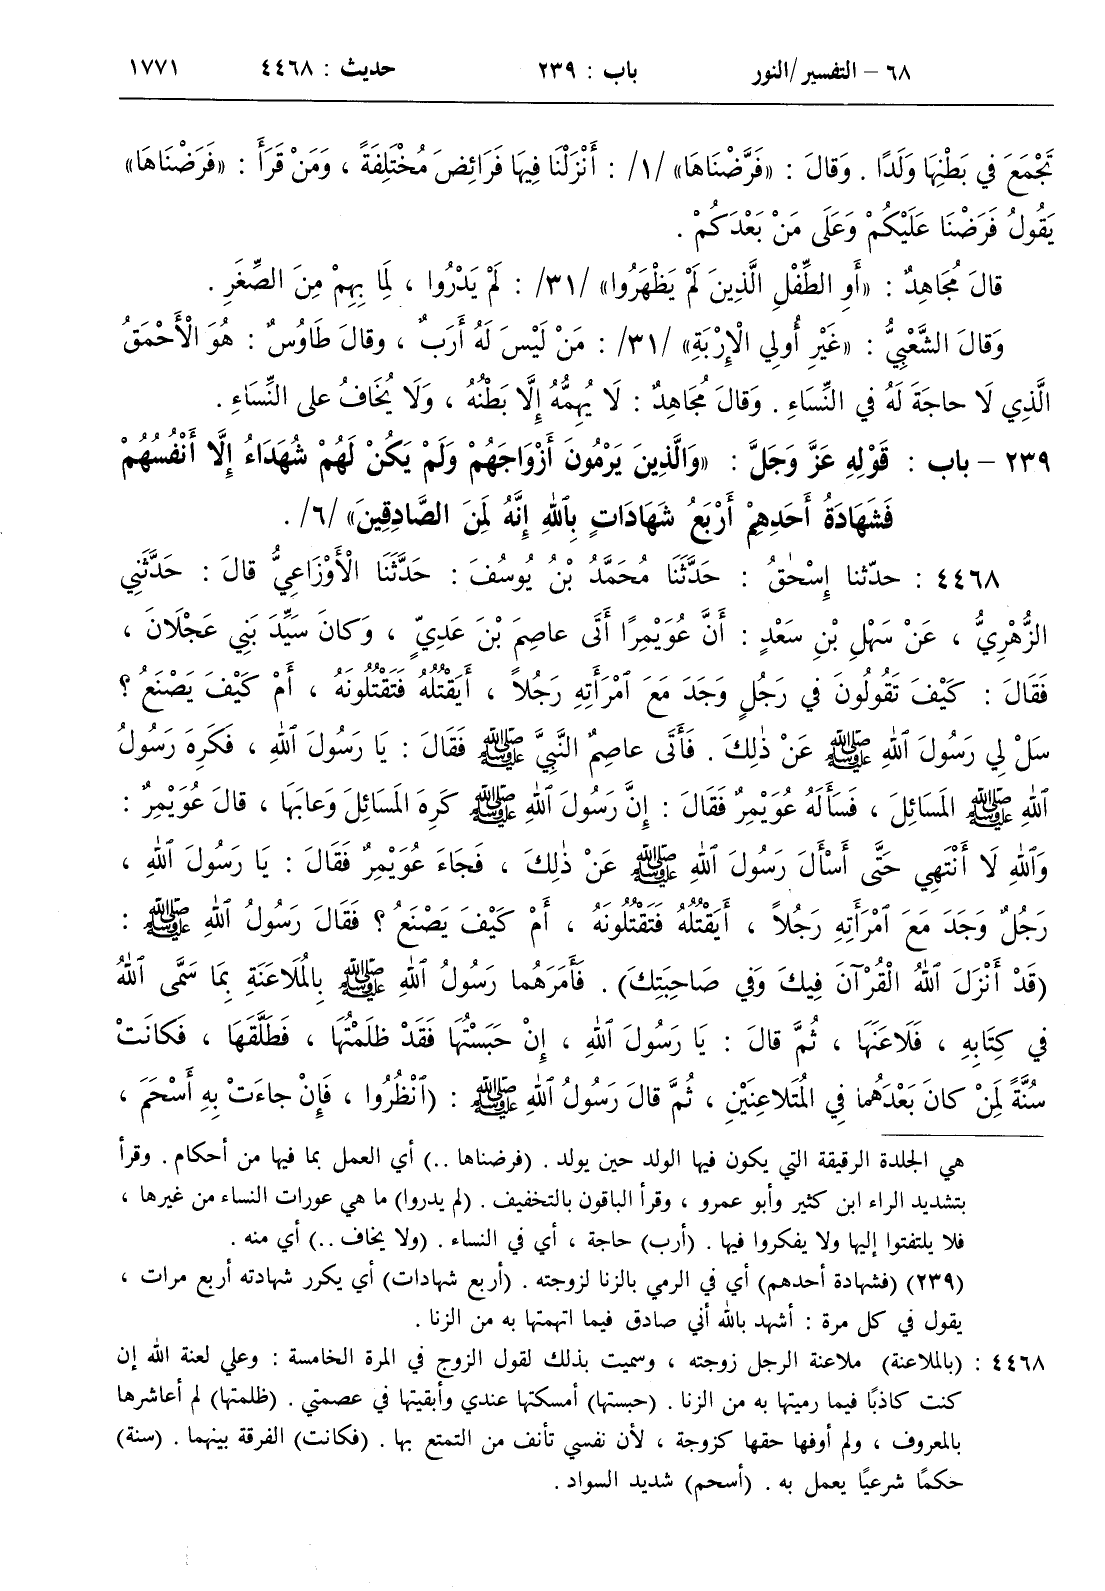 ٦٨ – التفسير/النور باب : ٢٣٩ حديث : ٤٤٦٨ ١٧٧١
تَجْمَعَ فِي بَطْنِهَا وَلَدًا . وَقالَ : «فَرَّضْنَاهَا» /١/ : أَنْزَلْنَا فِيهَا فَرَائِضَ مُخْتَلِفَةً ، وَمَنْ قَرَأَ : «فَرَضْنَاهَا»
يَقُولُ فَرَضْنَا عَلَيْكُمْ وَعَلَى مَنْ بَعْدَكُمْ .
قالَ مُجَاهِدٌ : «أَوِ الطِّفْلِ الَّذِينَ لَمْ يَظْهَرُوا» /٣١/ : لَمْ يَدْرُوا ، لِمَا بِهِمْ مِنَ الصِّغَرِ .
وَقالَ الشَّعْبِيُّ : «غَيْرِ أُولِي الْإِرْبَةِ» /٣١/ : مَنْ لَيْسَ لَهُ أَرَبٌ ، وقالَ طَاوُسٌ : هُوَ الْأَحْمَقُ
الَّذِي لَا حاجَةَ لَهُ فِي النِّسَاءِ . وَقالَ مُجَاهِدٌ : لَا يُهِمُّهُ إِلَّا بَطْنُهُ ، وَلَا يُخَافُ على النِّسَاءِ .
٢٣٩ – باب : قَوْلِهِ عَزَّ وَجَلَّ : «وَالَّذِينَ يَرْمُونَ أَزْوَاجَهُمْ وَلَمْ يَكُنْ لَهُمْ شُهَدَاءُ إِلَّا أَنْفُسُهُمْ
فَشَهَادَةُ أَحَدِهِمْ أَرْبَعُ شَهَادَاتٍ بِٱللهِ إِنَّهُ لَمِنَ الصَّادِقِينَ» /٦/ .
٤٤٦٨ : حدّثنا إِسْحٰقُ : حَدَّثَنَا مُحَمَّدُ بْنُ يُوسُفَ : حَدَّثَنَا الْأَوْزَاعِيُّ قالَ : حَدَّثَنِي
الزُّهْرِيُّ ، عَنْ سَهْلِ بْنِ سَعْدٍ : أَنَّ عُوَيْمِرًا أَتَى عاصِمَ بْنَ عَدِيٍّ ، وَكانَ سَيِّدَ بَنِي عَجْلَانَ ،
فَقَالَ : كَيْفَ تَقُولُونَ فِي رَجُلٍ وَجَدَ مَعَ ٱمْرَأَتِهِ رَجُلاً ، أَيَقْتُلُهُ فَتَقْتُلُونَهُ ، أَمْ كَيْفَ يَصْنَعُ ؟
سَلْ لِي رَسُولَ ٱللهِ ﷺ عَنْ ذٰلِكَ . فَأَتَى عاصِمٌ النَّبِيَّ ﷺ فَقَالَ : يَا رَسُولَ ٱللهِ ، فَكَرِهَ رَسُولُ
ٱللهِ ﷺ المَسَائِلَ ، فَسَأَلَهُ عُوَيْمِرٌ فَقَالَ : إِنَّ رَسُولَ ٱللهِ ﷺ كَرِهَ المَسَائِلَ وَعابَهَا ، قالَ عُوَيْمِرٌ :
وَٱللهِ لَا أَنْتَهِي حَتَّى أَسْأَلَ رَسُولَ ٱللهِ ﷺ عَنْ ذٰلِكَ ، فَجَاءَ عُوَيْمِرٌ فَقَالَ : يَا رَسُولَ ٱللهِ ،
رَجُلٌ وَجَدَ مَعَ ٱمْرَأَتِهِ رَجُلاً ، أَيَقْتُلُهُ فَتَقْتُلُونَهُ ، أَمْ كَيْفَ يَصْنَعُ ؟ فَقَالَ رَسُولُ ٱللهِ ﷺ :
(قَدْ أَنْزَلَ ٱللهُ الْقُرْآنَ فِيكَ وَفِي صَاحِبَتِكَ) . فَأَمَرَهُما رَسُولُ ٱللهِ ﷺ بِالْمُلَاعَنَةِ بِمَا سَمَّى ٱللهُ
في كِتَابِهِ ، فَلَاعَنَهَا ، ثُمَّ قالَ : يَا رَسُولَ ٱللهِ ، إِنْ حَبَسْتُهَا فَقَدْ ظَلَمْتُهَا ، فَطَلَّقَهَا ، فَكانَتْ
سُنَّةً لِمَنْ كانَ بَعْدَهُما فِي الْمُتَلَاعِنَيْنِ ، ثُمَّ قالَ رَسُولُ ٱللهِ ﷺ : (ٱنْظُرُوا ، فَإِنْ جاءَتْ بِهِ أَسْحَمَ ،
هي الجلدة الرقيقة التي يكون فيها الولد حين يولد . (فرضناها ..) أي العمل بما فيها من أحكام . وقرأ
بتشديد الراء ابن كثير وأبو عمرو ، وقرأ الباقون بالتخفيف . (لم يدروا) ما هي عورات النساء من غيرها ،
فلا يلتفتوا إليها ولا يفكروا فيها . (أرب) حاجة ، أي في النساء . (ولا يخاف ..) أي منه .
(٢٣٩) (فشهادة أحدهم) أي في الرمي بالزنا لزوجته . (أربع شهادات) أي يكرر شهادته أربع مرات ،
يقول في كل مرة : أشهد بالله أني صادق فيما اتهمتها به من الزنا .
٤٤٦٨ : (بالملاعنة) ملاعنة الرجل زوجته ، وسميت بذلك لقول الزوج في المرة الخامسة : وعلي لعنة الله إن
كنت كاذبًا فيما رميتها به من الزنا . (حبستها) أمسكتها عندي وأبقيتها في عصمتي . (ظلمتها) لم أعاشرها
بالمعروف ، ولم أوفها حقها كزوجة ، لأن نفسي تأنف من التمتع بها . (فكانت) الفرقة بينهما . (سنة)
حكمًا شرعيًا يعمل به . (أسحم) شديد السواد .